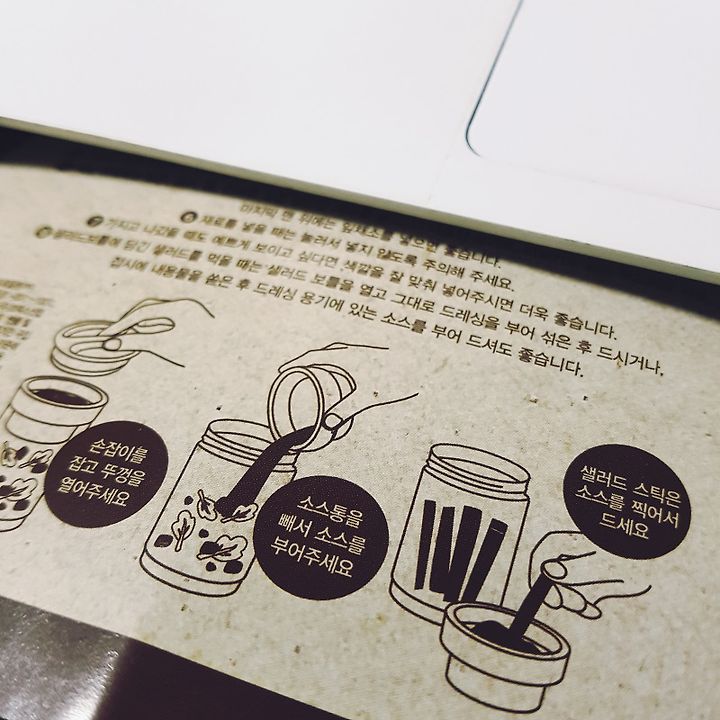 마지막 맨 위에는 잎채소를 넣으면 좋습니다.
재료를 넣을 때는 눌러서 넣지 않도록 주의해 주세요.
가지고 나갔을 때도 예쁘게 보이고 싶다면 색깔을 잘 맞춰 넣어주시면 더욱 좋습니다.
샐러드보틀에 담긴 샐러드를 먹을 때는 샐러드 보틀을 열고 그대로 드레싱을 부어 섞은 후 드시거나,
접시에 내용물을 쏟은 후 드레싱 용기에 있는 소스를 부어 드셔도 좋습니다.
손잡이를
잡고 뚜껑을
열어주세요
소스통을
빼서 소스를
부어주세요
샐러드 스틱은
소스를 찍어서
드세요